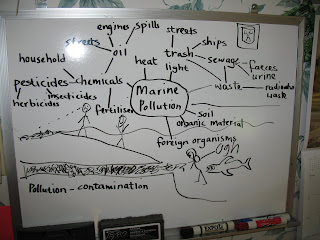 engines spills
streets
streets
ships
oil
trash
sewage
faeces
urine
household
heat
light
waste
pesticides
chemicals
insecticides
herbicides
fertiliser
Marine
Pollution
soil
organic material
foreign organisms
ugh
Pollution - contamination
EXPO